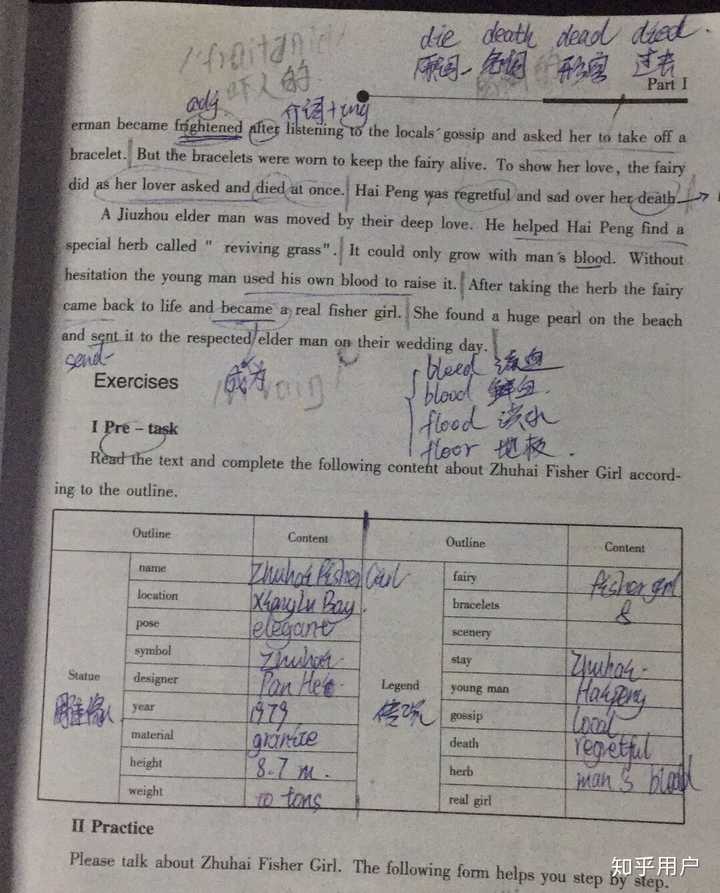 die death dead died.
原词 名词 形容 过去
吓人的
Part I
adj 介词+ing
erman became frightened after listening to the locals' gossip and asked her to take off a
bracelet. But the bracelets were worn to keep the fairy alive. To show her love, the fairy
did as her lover asked and died at once. Hai Peng was regretful and sad over her death
A Jiuzhou elder man was moved by their deep love. He helped Hai Peng find a
special herb called " reviving grass". It could only grow with man's blood. Without
hesitation the young man used his own blood to raise it. After taking the herb the fairy
came back to life and became a real fisher girl. She found a huge pearl on the beach
and sent it to the respected elder man on their wedding day.
send
成为
bleed 流血
blood 鲜血
flood 洪水
floor 地板.
Exercises
I Pre-task
Read the text and complete the following content about Zhuhai Fisher Girl accord-
ing to the outline.
Outline Content Outline Content
name Zhuhai Fisher Girl fairy fisher girl
location Xianglu Bay. bracelets 8
pose elegant scenery
symbol Zhuhai stay Zhuhai
Statue 雕像 designer Pan He Legend 传说 young man Haipeng
year 1979 gossip local
material granite death regretful
height 8.7 m. herb man's blood
weight 10 tons real girl
II Practice
Please talk about Zhuhai Fisher Girl. The following form helps you step by step.
知乎用户